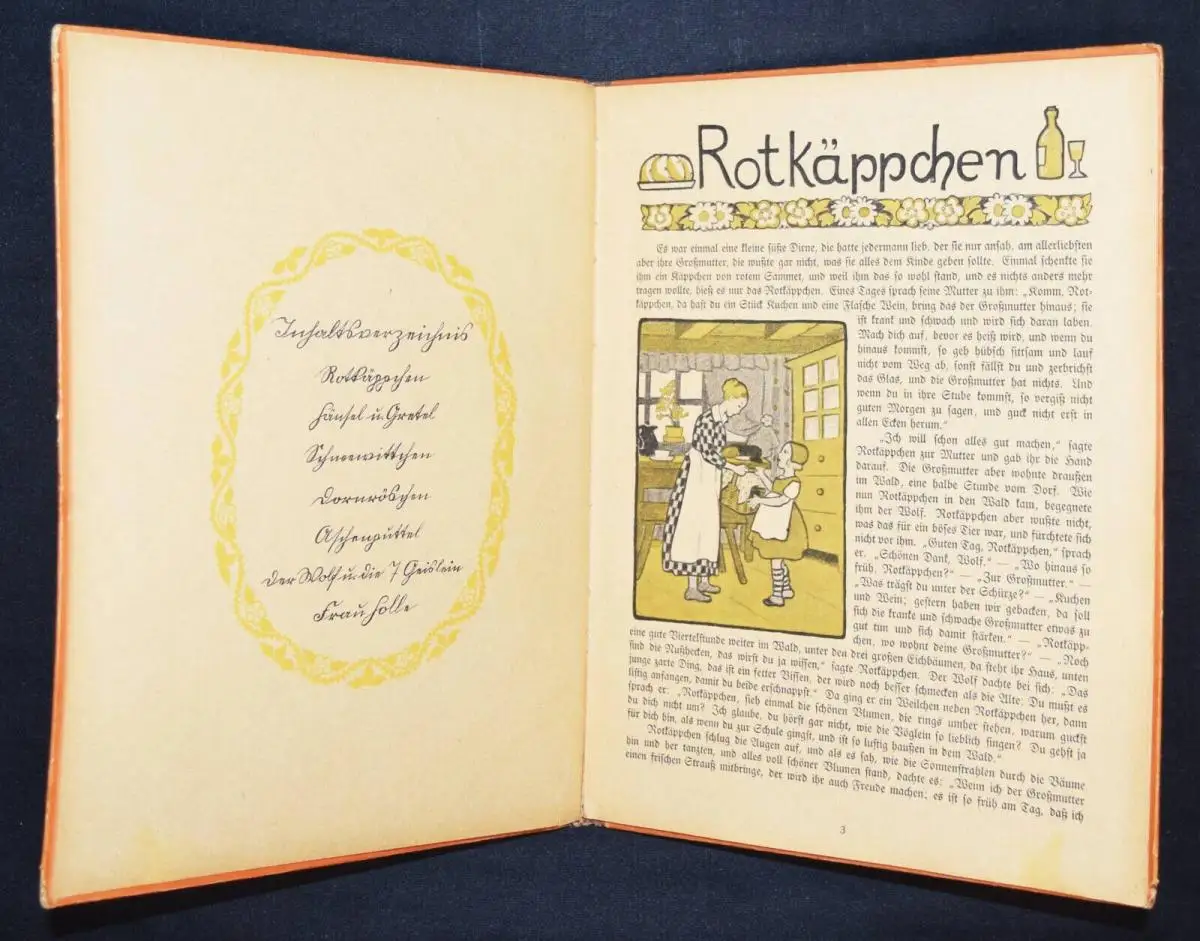 Inhaltsverzeichnis
Rotkäppchen
Hänsel u. Gretel
Schneewittchen
Dornröschen
Aschenputtel
Der Wolf u. die 7 Geislein
Frau Holle
Rotkäppchen
Es war einmal eine kleine süße Dirne, die hatte jedermann lieb, der sie nur ansah, am allerliebsten
aber ihre Großmutter, die wußte gar nicht, was sie alles dem Kinde geben sollte. Einmal schenkte sie
ihm ein Käppchen von rotem Sammet, und weil ihm das so wohl stand, und es nichts anders mehr
tragen wollte, hieß es nur das Rotkäppchen. Eines Tages sprach seine Mutter zu ihm: „Komm, Rot-
käppchen, da hast du ein Stück Kuchen und eine Flasche Wein, bring das der Großmutter hinaus; sie
ist krank und schwach und wird sich daran laben.
Mach dich auf, bevor es heiß wird, und wenn du
hinaus kommst, so geh hübsch sittsam und lauf
nicht vom Weg ab, sonst fällst du und zerbrichst
das Glas, und die Großmutter hat nichts. Und
wenn du in ihre Stube kommst, so vergiß nicht
guten Morgen zu sagen, und guck nicht erst in
allen Ecken herum.“
„Ich will schon alles gut machen,“ sagte
Rotkäppchen zur Mutter und gab ihr die Hand
darauf. Die Großmutter aber wohnte draußen
im Wald, eine halbe Stunde vom Dorf. Wie
nun Rotkäppchen in den Wald kam, begegnete
ihm der Wolf. Rotkäppchen aber wußte nicht,
was das für ein böses Tier war, und fürchtete sich
nicht vor ihm. „Guten Tag, Rotkäppchen,“ sprach
er. „Schönen Dank, Wolf.“ — „Wo hinaus so
früh, Rotkäppchen?“ — „Zur Großmutter.“ —
„Was trägst du unter der Schürze?“ — „Kuchen
und Wein; gestern haben wir gebacken, da soll
sich die kranke und schwache Großmutter etwas zu
gut tun und sich damit stärken.“ — „Rotkäpp-
chen, wo wohnt deine Großmutter?“ — „Noch
eine gute Viertelstunde weiter im Wald, unter den drei großen Eichbäumen, da steht ihr Haus, unten
sind die Nußhecken, das wirst du ja wissen,“ sagte Rotkäppchen. Der Wolf dachte bei sich: „Das
junge zarte Ding, das ist ein fetter Bissen, der wird noch besser schmecken als die Alte: Du mußt es
listig anfangen, damit du beide erschnappst.“ Da ging er ein Weilchen neben Rotkäppchen her, dann
sprach er: „Rotkäppchen, sieh einmal die schönen Blumen, die rings umher stehen, warum guckst
du dich nicht um? Ich glaube, du hörst gar nicht, wie die Vöglein so lieblich singen? Du gehst ja
für dich hin, als wenn du zur Schule gingst, und ist so lustig haußen in dem Wald.“
Rotkäppchen schlug die Augen auf, und als es sah, wie die Sonnenstrahlen durch die Bäume
hin und her tanzten, und alles voll schöner Blumen stand, dachte es: „Wenn ich der Großmutter
einen frischen Strauß mitbringe, der wird ihr auch Freude machen; es ist so früh am Tag, daß ich
3